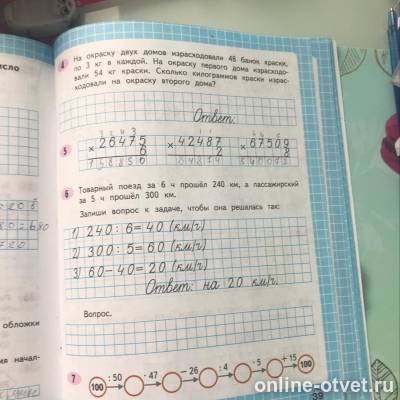 исло
4 На окраску двух домов израсходовали 48 банок краски,
по 3 кг в каждой. На окраску первого дома израсходо-
вали 54 кг краски. Сколько килограммов краски израс-
ходовали на окраску второго дома?
Ответ:
5 × 26475 × 42487 × 67509
6 2 8
6 Товарный поезд за 6 ч прошёл 240 км, а пассажирский
за 5 ч прошёл 300 км.
Запиши вопрос к задаче, чтобы она решалась так:
1) 240 : 6 = 40 (км/ч)
2) 300 : 5 = 60 (км/ч)
3) 60 − 40 = 20 (км/ч)
Ответ: на 20 км/ч.
Вопрос.
обложки
ия начал-
7 100 : 50 · 47 − 26 : 4 · 5 + 15 100
39
online-otvet.ru